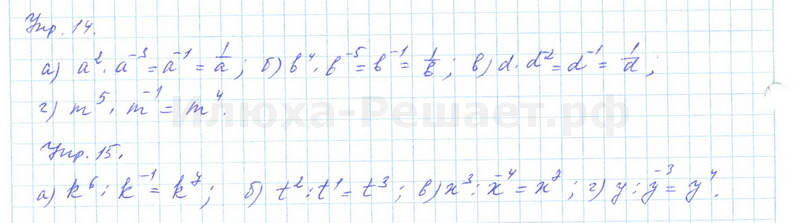 Упр. 14.
а) a² · a⁻³ = a⁻¹ = 1/a ; б) b⁴ · b⁻⁵ = b⁻¹ = 1/b ; в) d · d⁻² = d⁻¹ = 1/d ;
г) m⁵ · m⁻¹ = m⁴.
Илюха-Решает.рф
Упр. 15.
а) k⁶ : k⁻¹ = k⁷ ; б) t² : t¹ = t³ ; в) x³ : x⁻⁴ = x⁷ ; г) y : y⁻³ = y⁴.